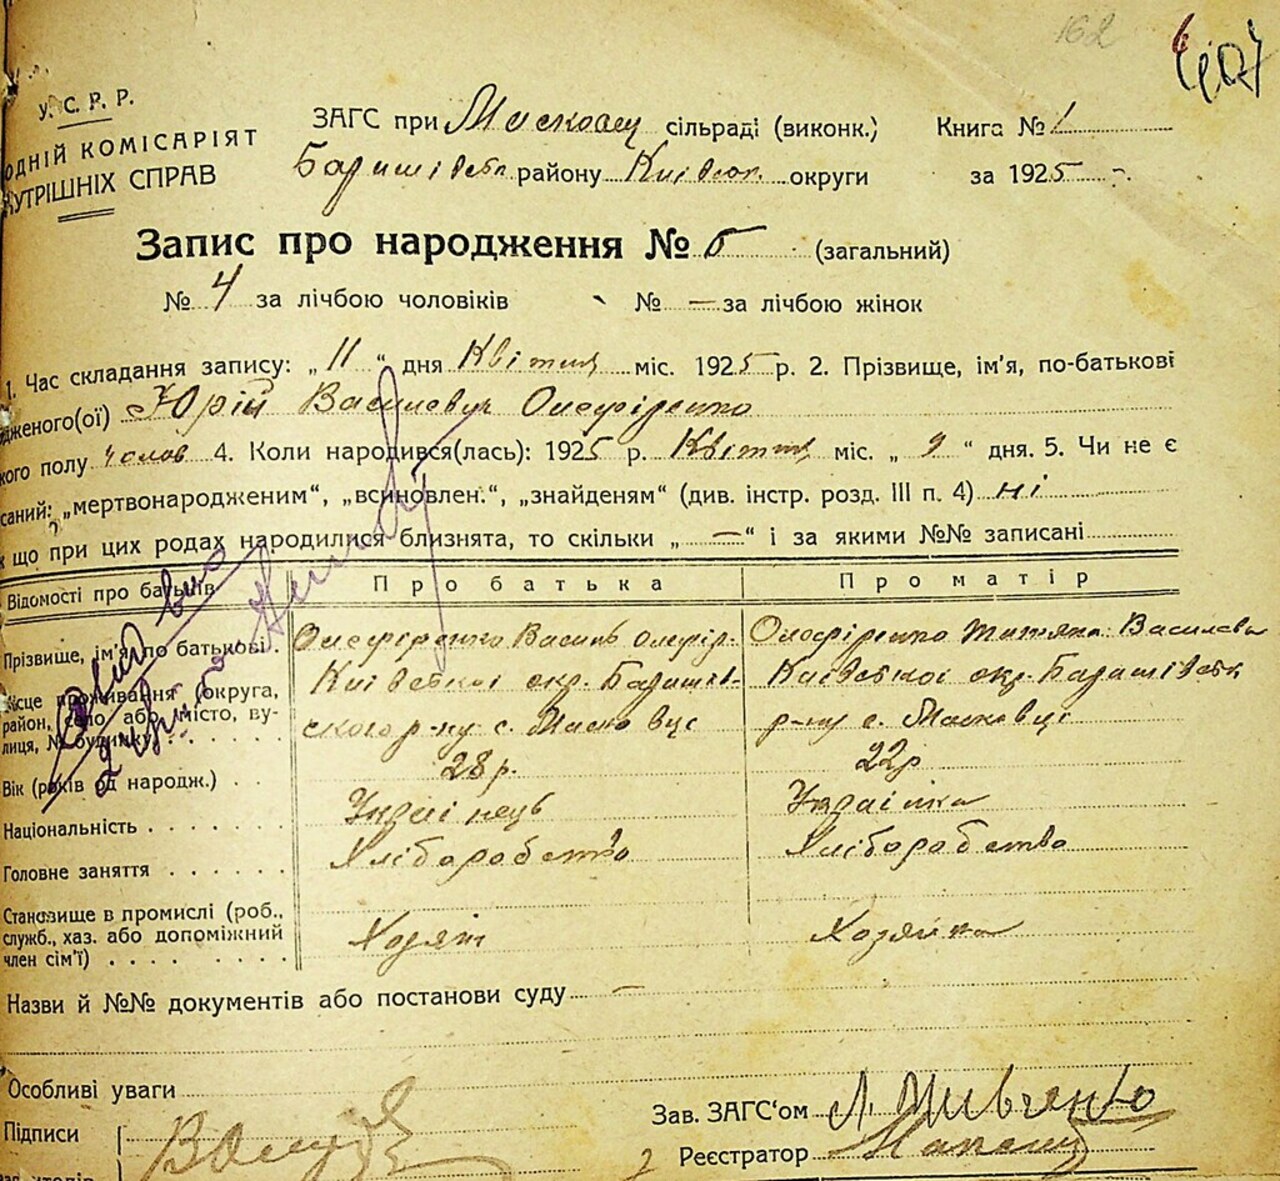 162
У. С. Р. Р.
ОДНІЙ КОМІСАРІЯТ
УТРІШНІХ СПРАВ
ЗАГС при сільраді (виконк.) Книга № 1
району округи за 1925
Запис про народження № 5 (загальний)
№ 4 за лічбою чоловіків № — за лічбою жінок
1. Час складання запису: „11“ дня Квітня міс. 1925 р. 2. Прізвище, ім’я, по-батькові
дженого(ої) Юрій Василевич Олефіренко
кого полу чолов 4. Коли народився(лась): 1925 р. Квітня міс. „9“ дня. 5. Чи не є
саний: „мертвонародженим“, „всиновлен.“, „знайденям“ (див. інстр. розд. III п. 4) ні
що при цих родах народилися близнята, то скільки „—“ і за якими №№ записані
Відомості про батьків Про батька Про матір
Прізвище, ім’я по батькові Олефіренко Василь Олефір. Олефіренко Титяна Василевна
Місце проживання (округа, Київської окр. Баришів- Київської окр. Баришівськ
район, село або місто, ву- ского р-ну с. р-ну с. Масковці
лиця, № будинку)
Вік (років од народж.) 28 р. 22 р
Національність Українець Українка
Головне заняття Хліборобство Хліборобства
Становище в промислі (роб.,
служб., хаз. або допоміжний Хозяїн Хозяйка
член сім’ї)
Назви й №№ документів або постанови суду —
Особливі уваги
Зав. ЗАГС‘ом
Підписи
Реєстратор